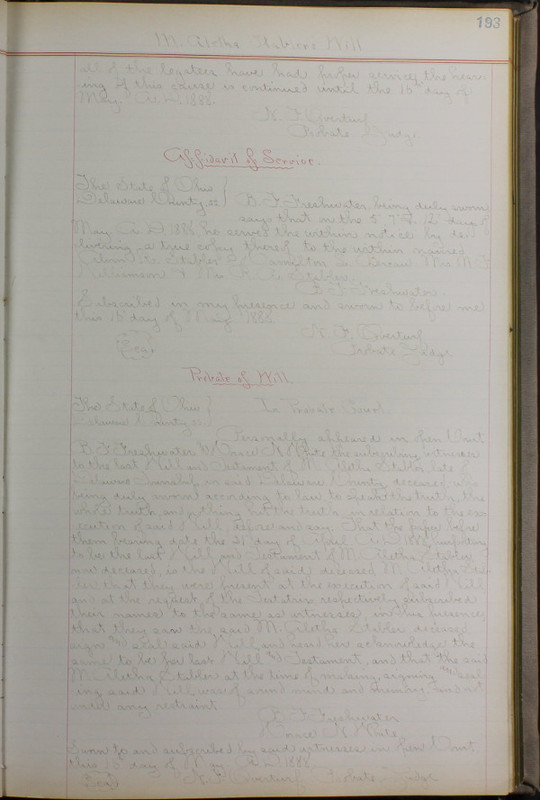 193
M. Aletha Stabler's Will
all of the legatees have had proper service, the hear-
ing of this cause is continued until the 16" day of
May A.D. 1888.
N. F. Overturf
Probate Judge
Affidavit of Service.
The State of Ohio
Delaware County, ss B. F. Freshwater being duly sworn
says that on the 5" 7" & 12" day of
May A.D. 1888, he served the within notice by de-
livering a true copy thereof to the within named
Stabler Hamilton Mrs. M. F.
Williamson & Mrs. Stabler.
B. F. Freshwater
Subscribed in my presence and sworn to before me
this 16" day of May 1888
N. F. Overturf
Seal Probate Judge
Probate of Will.
The State of Ohio In Probate Court
Delaware County, ss
Personally appeared in open Court
B. F. Freshwater & Horace N. the subscribing witnesses
to the last Will and Testament of M. Aletha Stabler late of
Delaware Township in said Delaware County, deceased, who
being duly sworn according to law to speak the truth, the
whole truth, and nothing but the truth, in relation to the exe-
cution of said Will, depose and say: That the paper before
them bearing date the 21" day of April A.D. purporting
to be the last Will and Testament of M. Aletha Stabler
now deceased, is the Will of said deceased, M. Aletha Stab-
ler that they were present at the execution of said Will
and at the request of the Testatrix, respectively subscribed
their names to the same as witnesses, in her presence
that they saw the said M. Aletha Stabler deceased
sign and seal said Will, and heard her acknowledge the
same to be her last Will and Testament, and that the said
M. Aletha Stabler at the time of making, signing and seal-
ing said Will was of sound mind and memory and not
under any restraint.
B. F. Freshwater
Horace N.
Sworn to and subscribed by said witnesses in open Court
this 16" day of May A.D. 1888
Seal N. F. Overturf Probate Judge